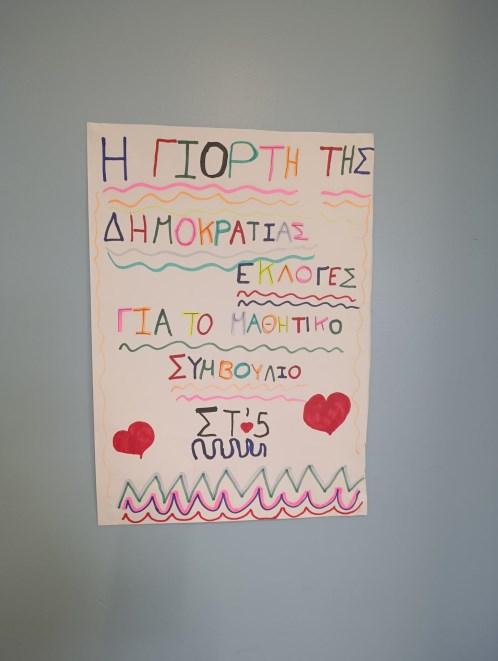 Η ΓΙΟΡΤΗ ΤΗΣ
ΔΗΜΟΚΡΑΤΙΑΣ
ΕΚΛΟΓΕΣ
ΓΙΑ ΤΟ ΜΑΘΗΤΙΚΟ
ΣΥΜΒΟΥΛΙΟ
ΣΤ'5